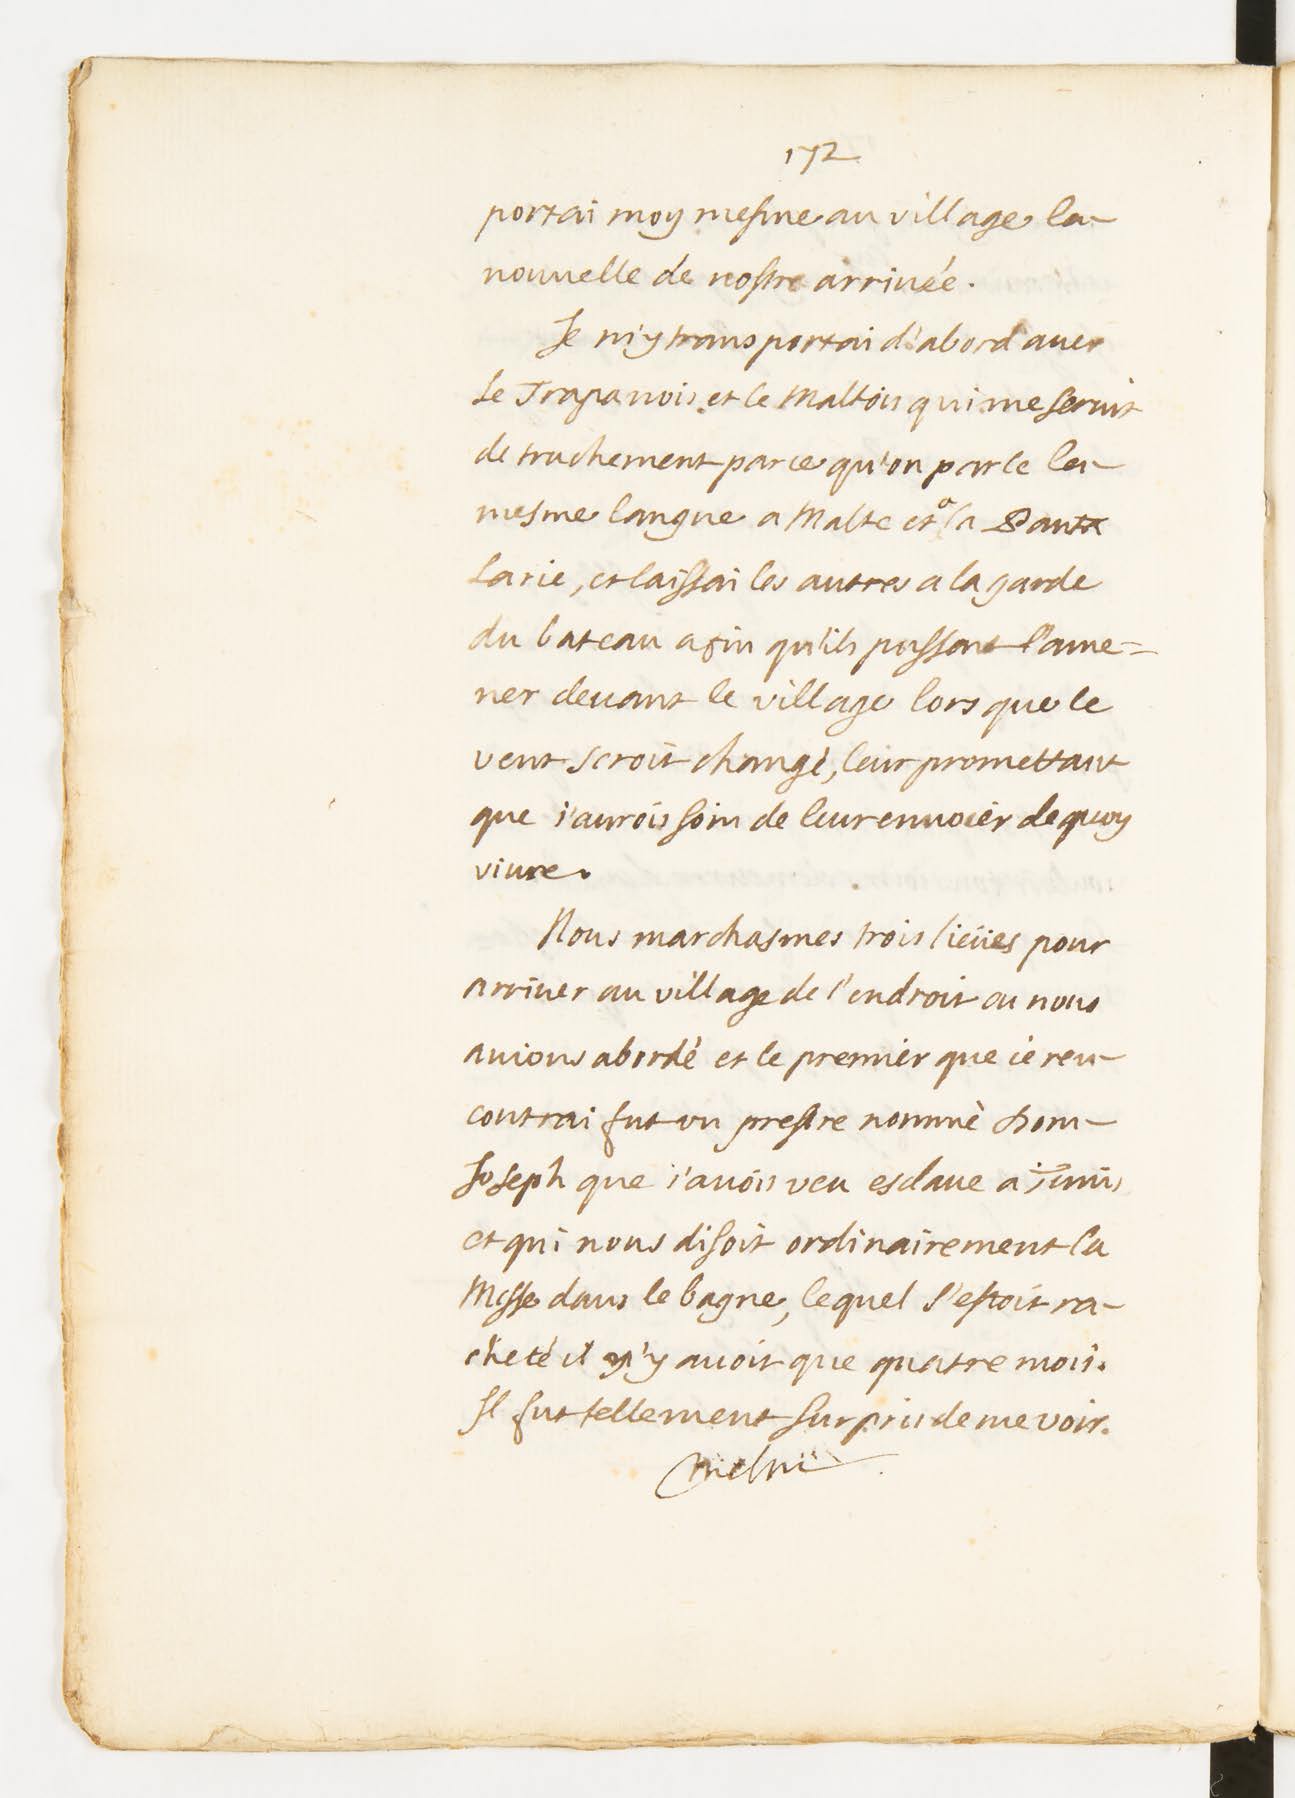 172
portai moy mesme au village la
nouuelle de nostre arriuée.
Je m'y transportai d'abord auec
le Trapanois et le Maltois qui me seruit
de truchement parce qu'on parle la
mesme langue a Malte et a la Panta
larie, et laissai les autres a la garde
du bateau afin qu'ils pussent l'ame=
ner deuant le village lors que le
vent seroit changé, leur promettant
que i'aurois soin de leur enuoier de quoy
viure.
Nous marchasmes trois lieües pour
arriuer au village de l'endroit ou nous
auions abordé et le premier que ie ren-
contrai fut vn prestre nommé Dom
Joseph que i'auois veu esclaue a Tunis
et qui nous disoit ordinairement la
Messe dans le bagne, lequel s'estoit ra-
cheté il n'y auoit que quatre mois.
Il fut tellement surpris de me voir.